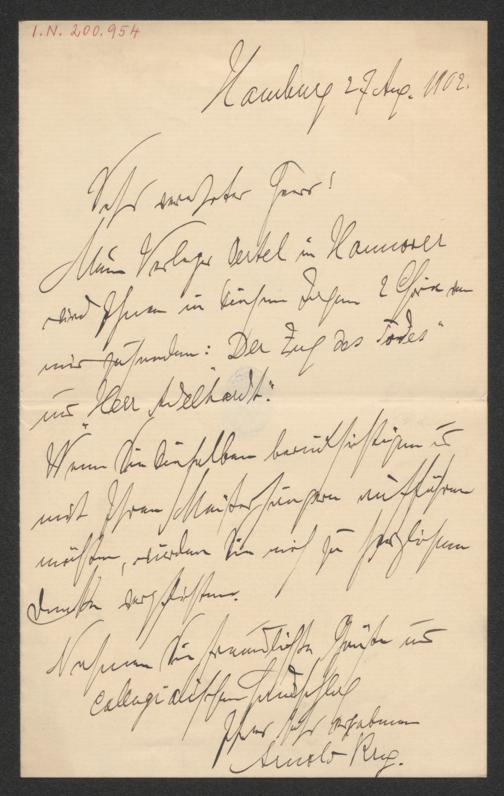 I.N. 200.954
Hamburg 27 Aug. 1902.
Sehr verehrter Herr!
Mein Verleger Oertel in Hannover
wird Ihnen in diesen Tagen 2 Chöre von
mir zusenden: „Der Zug des Todes"
und „Herr Adelhardt".
Wenn Sie dieselben berücksichtigen und
mit Ihren Meistersingern aufführen
möchten, würden Sie mich zu herzlichem
Danke verpflichten.
Nehmen Sie freundlichste Grüße und
collegialischen Handschlag
Ihres sehr ergebenen
Arnold Krug.